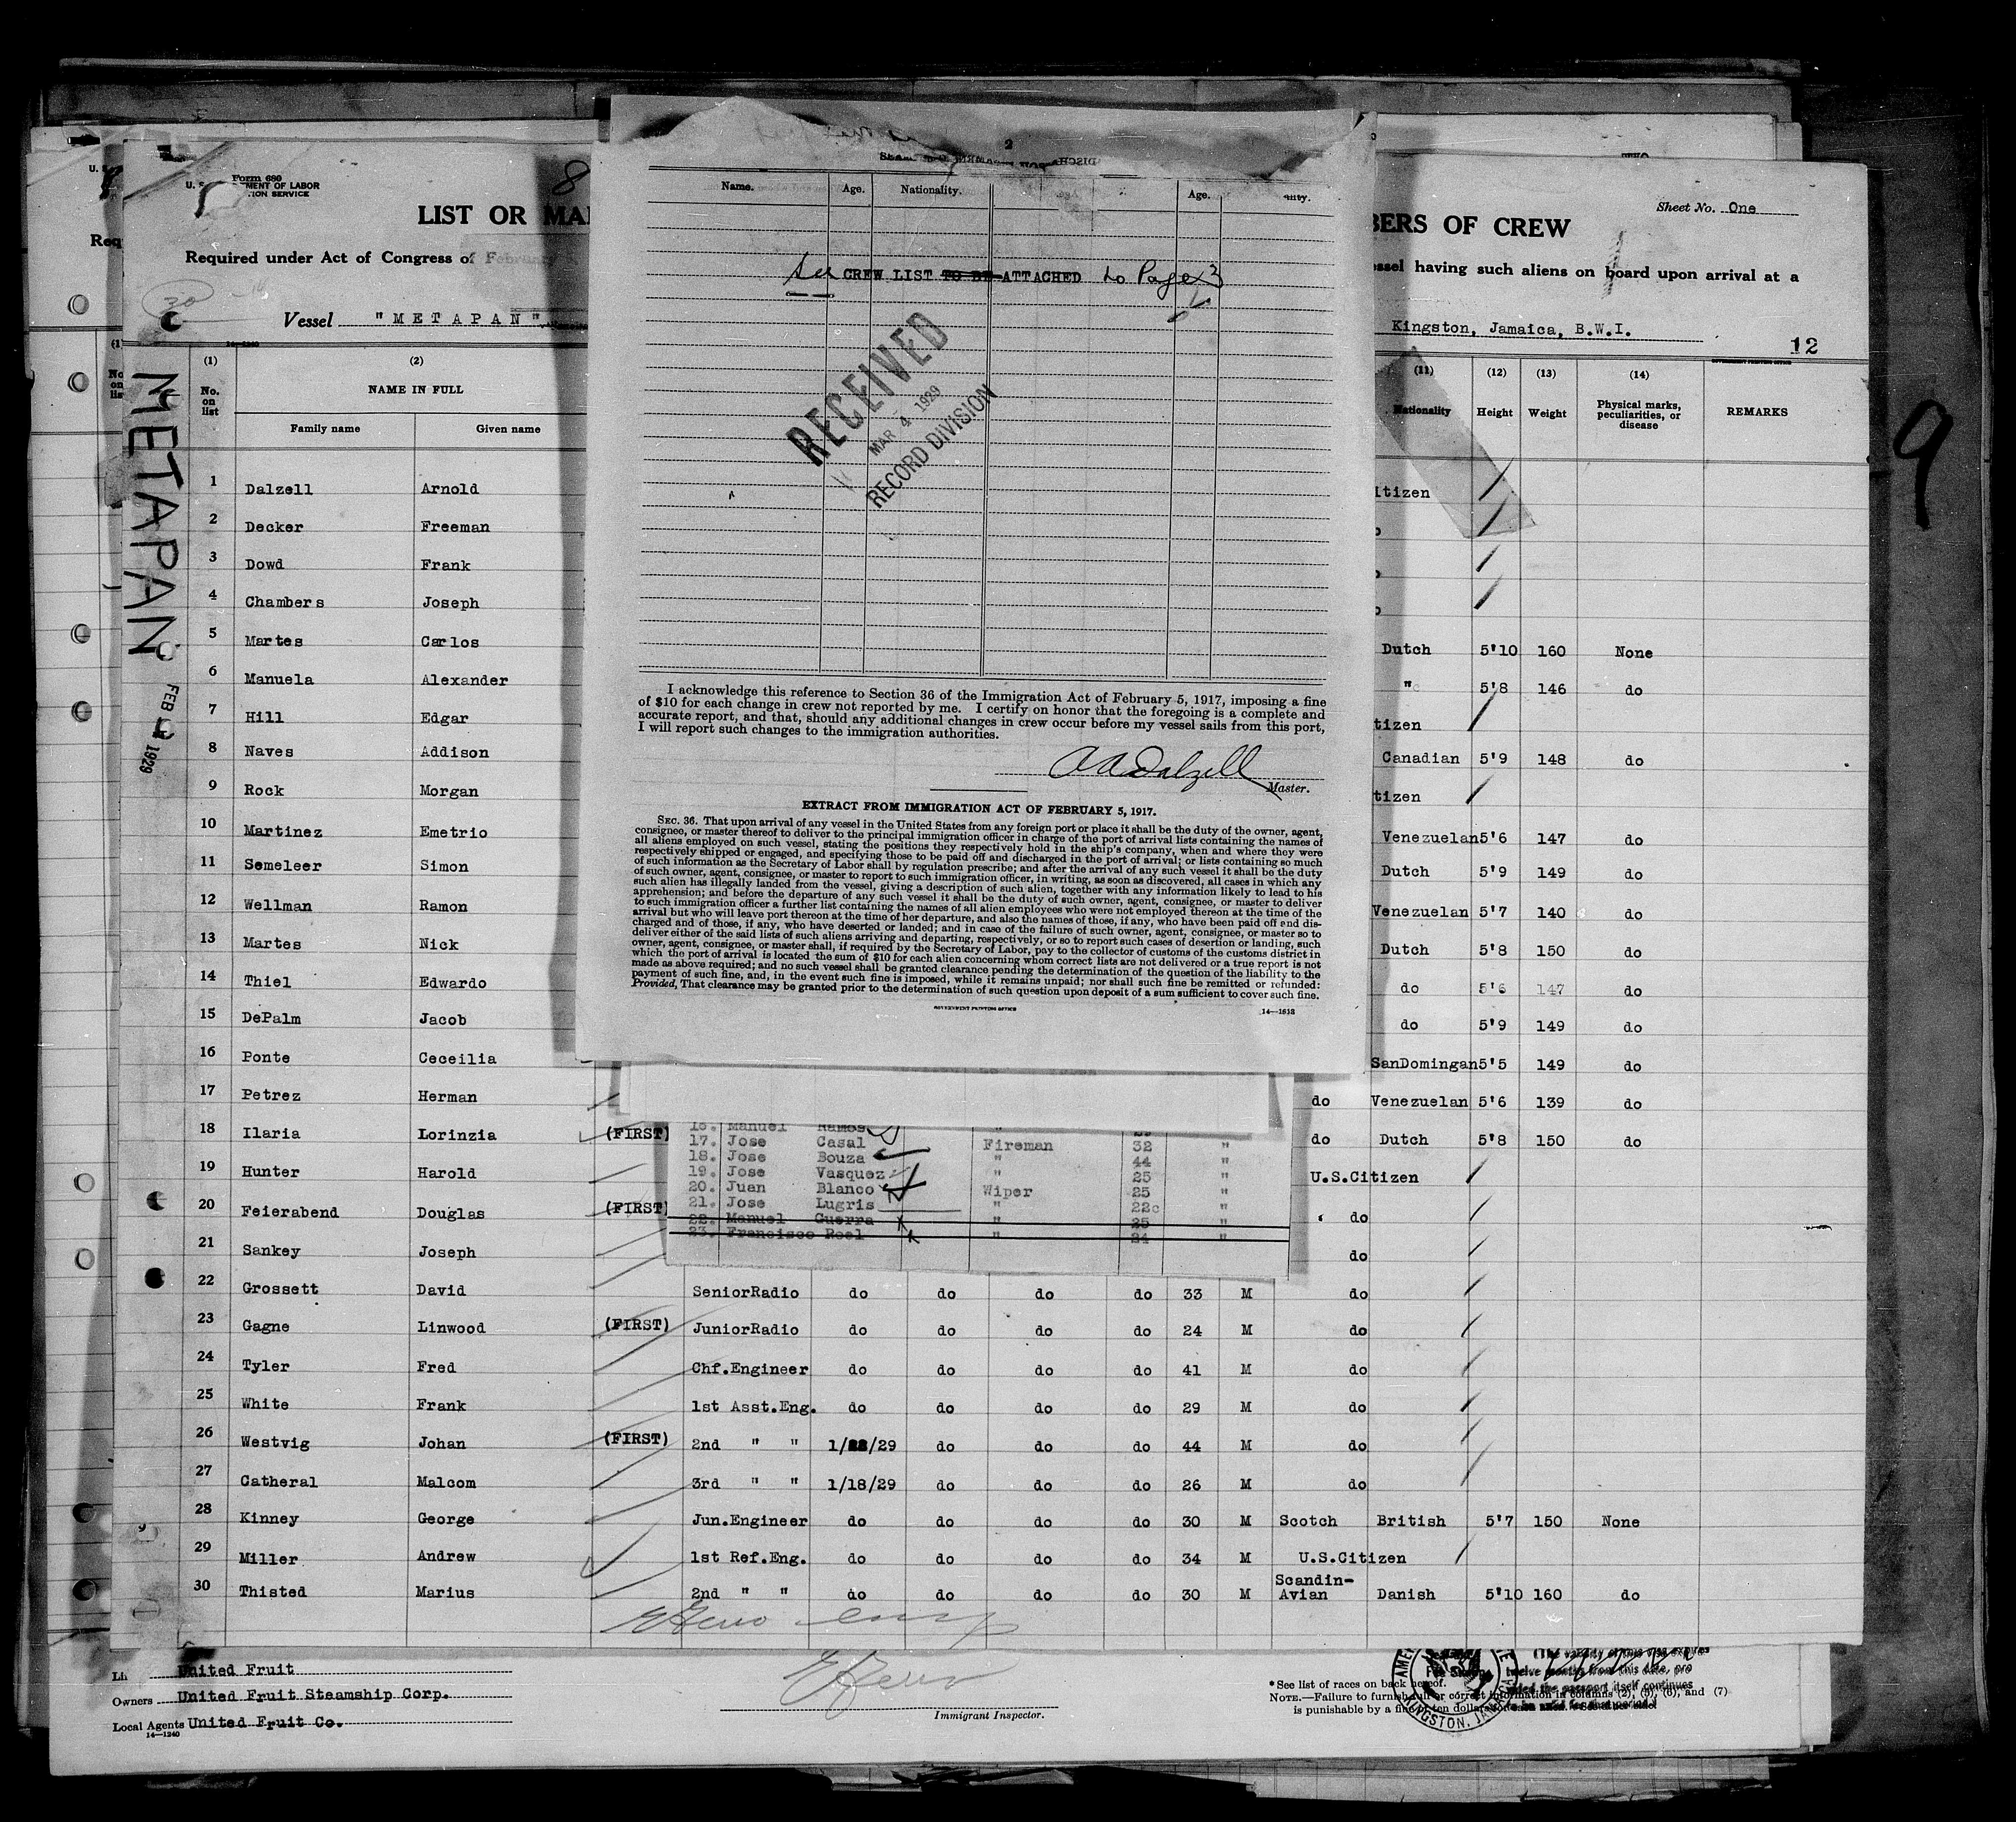 Form 680
U. S. MENT OF LABOR
ION SERVICE
8
LIST OR MA
BERS OF CREW
Sheet No. One
Required under Act of Congress of February 5,
essel having such aliens on board upon arrival at a
30
Vessel "METAPAN"
Kingston, Jamaica, B.W.I.
12
9
METAPAN
FEB 1929
(1) (2) (11) (12) (13) (14)
No. on list
NAME IN FULL
Family name Given name
Nationality Height Weight Physical marks, peculiarities, or disease REMARKS
1 Dalzell Arnold itizen
2 Decker Freeman
3 Dowd Frank
4 Chambers Joseph
5 Martes Carlos Dutch 5'10 160 None
6 Manuela Alexander " 5'8 146 do
7 Hill Edgar tizen
8 Naves Addison Canadian 5'9 148 do
9 Rock Morgan tizen
10 Martinez Emetrio Venezuelan 5'6 147 do
11 Semeleer Simon Dutch 5'9 149 do
12 Wellman Ramon Venezuelan 5'7 140 do
13 Martes Nick Dutch 5'8 150 do
14 Thiel Edwardo do 5'6 147 do
15 DePalm Jacob do 5'9 149 do
16 Ponte Ceceilia SanDomingan 5'5 149 do
17 Petrez Herman do Venezuelan 5'6 139 do
18 Ilaria Lorinzia (FIRST) do Dutch 5'8 150 do
19 Hunter Harold U.S.Citizen
20 Feierabend Douglas (FIRST) do
21 Sankey Joseph do
22 Grossett David SeniorRadio do do do do 33 M do
23 Gagne Linwood (FIRST) JuniorRadio do do do do 24 M do
24 Tyler Fred Chf.Engineer do do do do 41 M do
25 White Frank 1st Asst.Eng. do do do do 29 M do
26 Westvig Johan (FIRST) 2nd " " 1/22/29 do do do 44 M do
27 Catheral Malcom 3rd " " 1/18/29 do do do 26 M do
28 Kinney George Jun.Engineer do do do do 30 M Scotch British 5'7 150 None
29 Miller Andrew 1st Ref.Eng. do do do do 34 M U.S.Citizen
30 Thisted Marius 2nd " " do do do do 30 M Scandin-Avian Danish 5'10 160 do
2
Name. Age. Nationality. Age.
See CREW LIST TO BE ATTACHED to Page 3
RECEIVED
MAR 4 1929
RECORD DIVISION
I acknowledge this reference to Section 36 of the Immigration Act of February 5, 1917, imposing a fine
of $10 for each change in crew not reported by me. I certify on honor that the foregoing is a complete and
accurate report, and that, should any additional changes in crew occur before my vessel sails from this port,
I will report such changes to the immigration authorities.
A A Dalzell
Master.
EXTRACT FROM IMMIGRATION ACT OF FEBRUARY 5, 1917.
SEC. 36. That upon arrival of any vessel in the United States from any foreign port or place it shall be the duty of the owner, agent,
consignee, or master thereof to deliver to the principal immigration officer in charge of the port of arrival lists containing the names of
all aliens employed on such vessel, stating the positions they respectively hold in the ship's company, when and where they were
respectively shipped or engaged, and specifying those to be paid off and discharged in the port of arrival; or lists containing so much
of such information as the Secretary of Labor shall by regulation prescribe; and after the arrival of any such vessel it shall be the duty
of such owner, agent, consignee, or master to report to such immigration officer, in writing, as soon as discovered, all cases in which any
such alien has illegally landed from the vessel, giving a description of such alien, together with any information likely to lead to his
apprehension; and before the departure of any such vessel it shall be the duty of such owner, agent, consignee, or master to deliver
to such immigration officer a further list containing the names of all alien employees who were not employed thereon at the time of the
arrival but who will leave port thereon at the time of her departure, and also the names of those, if any, who have been paid off and dis-
charged and of those, if any, who have deserted or landed; and in case of the failure of such owner, agent, consignee, or master so to
deliver either of the said lists of such aliens arriving and departing, respectively, or so to report such cases of desertion or landing, such
owner, agent, consignee, or master shall, if required by the Secretary of Labor, pay to the collector of customs of the customs district in
which the port of arrival is located the sum of $10 for each alien concerning whom correct lists are not delivered or a true report is not
made as above required; and no such vessel shall be granted clearance pending the determination of the question of the liability to the
payment of such fine, and, in the event such fine is imposed, while it remains unpaid; nor shall such fine be remitted or refunded:
Provided, That clearance may be granted prior to the determination of such question upon deposit of a sum sufficient to cover such fine.
GOVERNMENT PRINTING OFFICE
16. Manuel Ramos
17. Jose Casal Fireman 32 "
18. Jose Bouza " 44 "
19. Jose Vasquez " 25 "
20. Juan Blanco Wiper 25 "
21. Jose Lugris " 22 "
22. Manuel Guerra " 25 "
23. Francisco Roel " 24 "
United Fruit
Owners United Fruit Steamship Corp.
Local Agents United Fruit Co.
14—1240
Immigrant Inspector.
*See list of races on back hereof.
NOTE.—Failure to furnish full or correct information in columns (2), (5), (6), and (7)
is punishable by a fine of ten dollars
KINGSTON, JAMAICA
twelve months from this date, pro
the passport itself continues